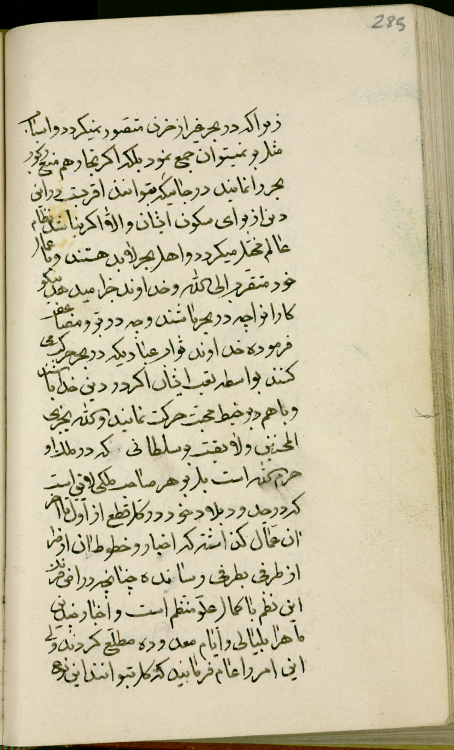 285
زیرا که در بحر غیر از حزن متصور نمیگردد و اسباب
مثل بر نمیتوان جمع نمود بلکه اگر تجار هم
بحر را نمایند در حالیکه بتوانند اقرب است در این
دین از برای سکون ایشان والا اگر نباشند نظام
عالم مختل میگردد و اهل بحر لابد هستند
خود متقرب الی الله و خداوند خرامید هد نیکو
کارانرا چه در بحر باشند و چه در بر و مضاعف
فرموده خداوند ثواب عبادیکه در بحر حرکت
کنند بواسطه تعب ایشان اگر در دین خدا باشند
و باهم در خیط محبت حرکت نمایند ولله یجزی
المحسنین ولایقست بر سلطانی که در ملک او
حرم الله است بلکه بر هر صاحب ملکی لایق است
که در حد و بلاد خود در کل قطع از اول تا آخر
ان عمال کذاشته که اخبار و خطوط ان
از طرفی بطرفی رسانده چنانچه در ارض
این نظم باکمال علو منتظم است و اخبار
ماهرا بلیالی و ایام معدوده مطلع کردند ولی
این امر را عام فرمایند که کل بتوانند این نوع